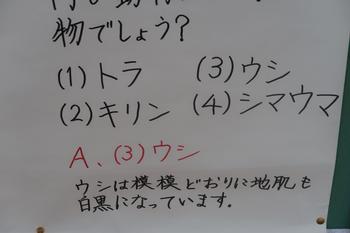 物でしょう?
(1)トラ (3)ウシ
(2)キリン (4)シマウマ
A、(3)ウシ
ウシは模模どおりに地肌も
白黒になっています。